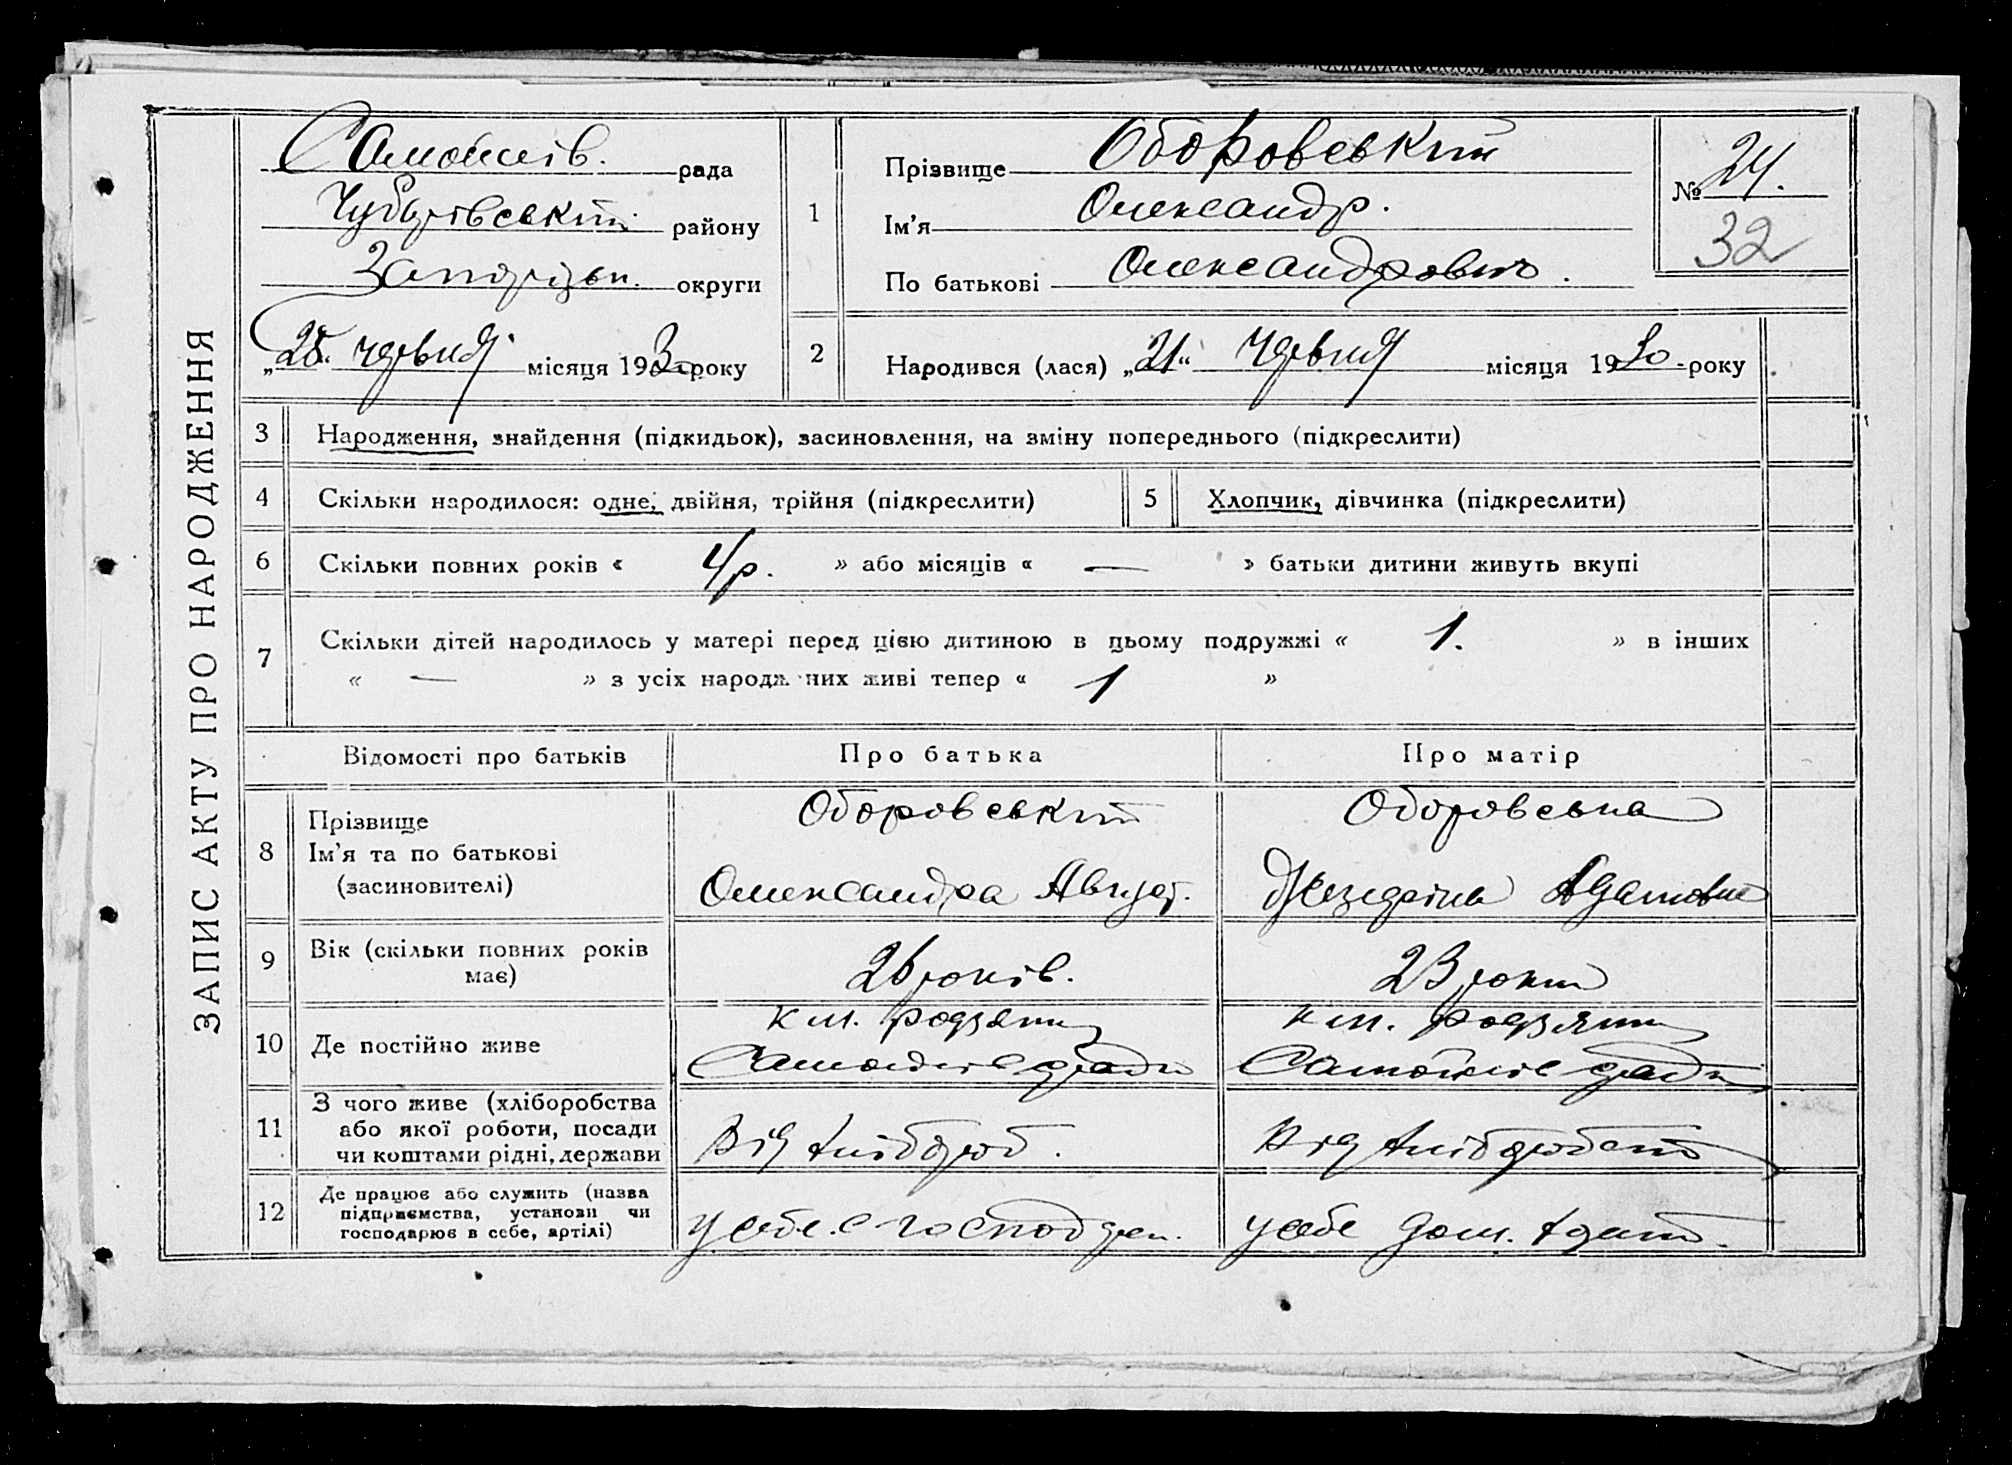 ЗАПИС АКТУ ПРО НАРОДЖЕННЯ
Самойлів. рада
Чубарівський району
Запорізьк. округи
„25“ червня місяця 1930 року
1
Прізвище Оборовський
Ім'я Олександр.
По батькові Олександрович.
№ 24.
32
2
Народився (лася) „21“ червня місяця 1930-року
3 Народження, знайдення (підкидьок), засиновлення, на зміну попереднього (підкреслити)
4 Скільки народилося: одне, двійня, трійня (підкреслити)
5 Хлопчик, дівчинка (підкреслити)
6 Скільки повних років « 4 р. » або місяців « — » батьки дитини живуть вкупі
7 Скільки дітей народилось у матері перед цією дитиною в цьому подружжі « 1. » в інших
« — » з усіх народж них живі тепер « 1 »
Відомості про батьків
Про батька
Про матір
8
Прізвище
Ім'я та по батькові
(засиновителі)
Оборовський
Олександра Август.
Оборовська
Адамовна
9
Вік (скільки повних років
має)
26 років.
23 роки
10 Де постійно живе
кол. Родзянки
Самойлів ради
кол. Родзянки
Самойлів ради
11
З чого живе (хліборобства
або якої роботи, посади
чи коштами рідні, держави
Від хлібороб.
Від хліборобст
12
Де працює або служить (назва
підприємства, установи чи
господарює в себе, артілі)
у себе в господар.
у себе дом.